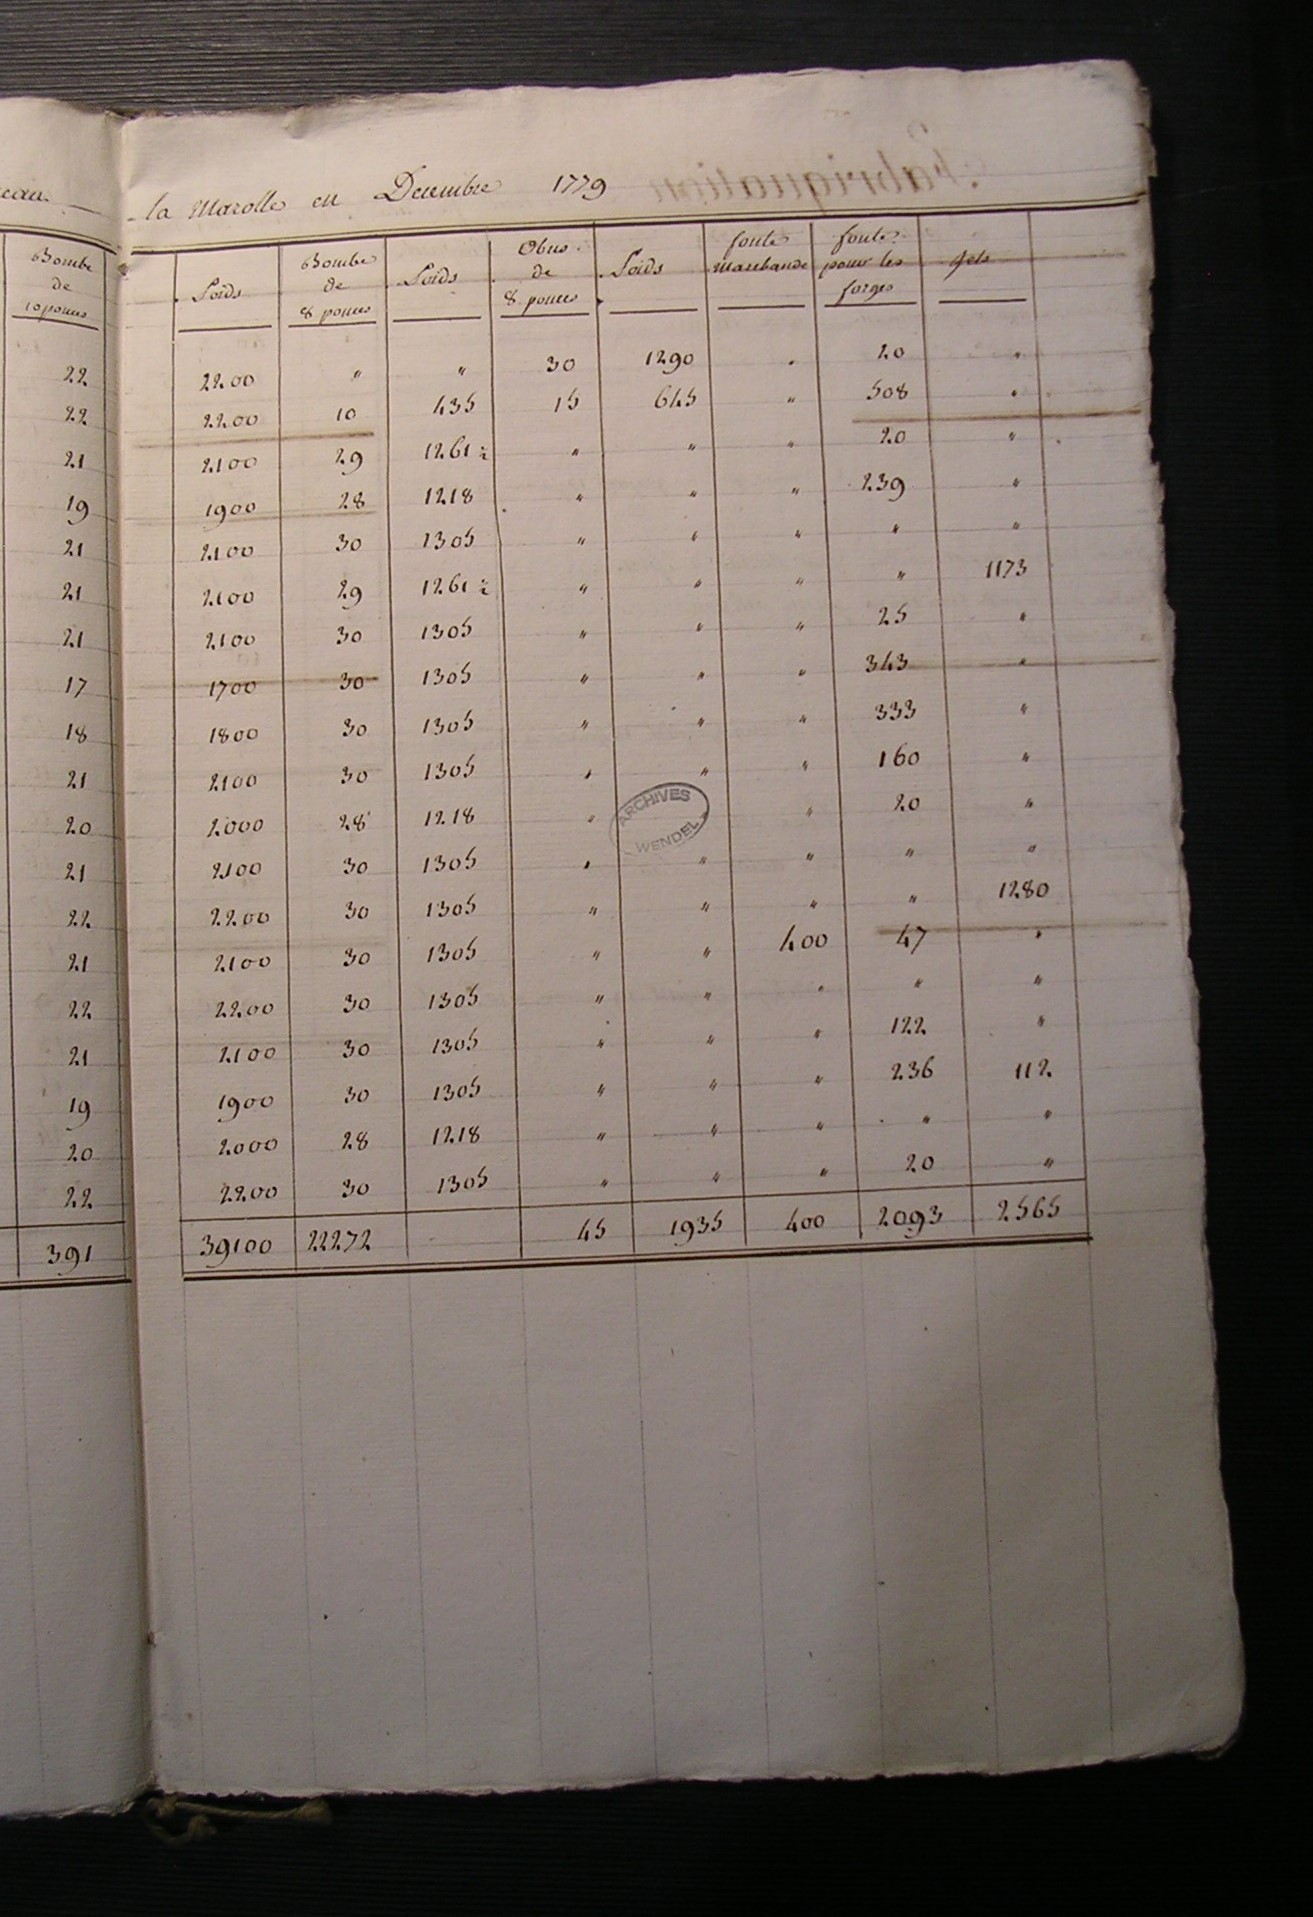 la Marolle en Decembre 1779
Bombe de 10 pouces | Poids | Bombe de 8 pouces | Poids | Obus de 8 pouces | Poids | fonte marchande | fonte pour les forges | Jets
22 | 2200 | " | " | 30 | 1290 | " | 20 | "
22 | 2200 | 10 | 435 | 15 | 645 | " | 508 | "
21 | 2100 | 29 | 1261 ½ | " | " | " | 20 | "
19 | 1900 | 28 | 1218 | " | " | " | 239 | "
21 | 2100 | 30 | 1305 | " | " | " | " | "
21 | 2100 | 29 | 1261 ½ | " | " | " | " | 1173
21 | 2100 | 30 | 1305 | " | " | " | 25 | "
17 | 1700 | 30 | 1305 | " | " | " | 343 | "
18 | 1800 | 30 | 1305 | " | " | " | 333 | "
21 | 2100 | 30 | 1305 | " | " | " | 160 | "
20 | 2000 | 28 | 1218 | " | " | " | 20 | "
21 | 2100 | 30 | 1305 | " | " | " | " | "
22 | 2200 | 30 | 1305 | " | " | " | " | 1280
21 | 2100 | 30 | 1305 | " | " | 400 | 47 | "
22 | 2200 | 30 | 1305 | " | " | " | " | "
21 | 2100 | 30 | 1305 | " | " | " | 122 | "
19 | 1900 | 30 | 1305 | " | " | " | 236 | 112
20 | 2000 | 28 | 1218 | " | " | " | " | "
22 | 2200 | 30 | 1305 | " | " | " | 20 | "
391 | 39100 | 22272 | | 45 | 1935 | 400 | 2093 | 2565
ARCHIVES
WENDEL